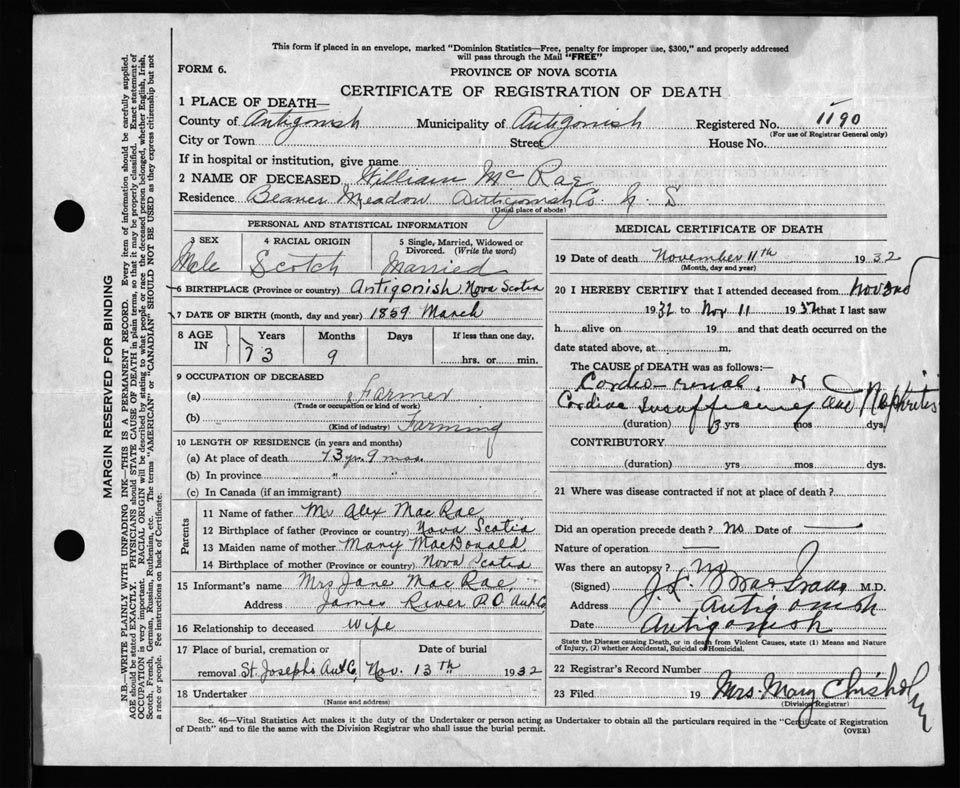 This form if placed in an envelope, marked "Dominion Statistics—Free, penalty for improper use, $300," and properly addressed
will pass through the Mail "FREE"
FORM 6.
PROVINCE OF NOVA SCOTIA
CERTIFICATE OF REGISTRATION OF DEATH
1 PLACE OF DEATH—
County of Antigonish Municipality of Antigonish Registered No. 1190
(For use of Registrar General only)
City or Town Street House No.
If in hospital or institution, give name
2 NAME OF DECEASED William McRae
Residence Beaver Meadow Antigonish Co. N. S
(Usual place of abode)
PERSONAL AND STATISTICAL INFORMATION
3 SEX 4 RACIAL ORIGIN 5 Single, Married, Widowed or
Divorced. (Write the word)
Male Scotch Married
6 BIRTHPLACE (Province or country) Antigonish Nova Scotia
7 DATE OF BIRTH (month, day and year) 1859 March
8 AGE IN Years Months Days If less than one day,
73 9 hrs. or min.
9 OCCUPATION OF DECEASED
(a) Farmer
(Trade or occupation or kind of work)
(b) Farming
(Kind of industry)
10 LENGTH OF RESIDENCE (in years and months)
(a) At place of death 73 yrs. 9 mos.
(b) In province " "
(c) In Canada (if an immigrant)
Parents
11 Name of father Mr Alex MacRae
12 Birthplace of father (Province or country) Nova Scotia
13 Maiden name of mother Mary MacDonald
14 Birthplace of mother (Province or country) Nova Scotia
15 Informant's name Mrs Jane MacRae
Address James River P.O. Ant Co
16 Relationship to deceased wife
17 Place of burial, cremation or Date of burial
removal St. Joseph's Ant Co. Nov. 13th 1932
18 Undertaker
(Name and address)
MEDICAL CERTIFICATE OF DEATH
19 Date of death November 11th 1932
(Month, day and year)
20 I HEREBY CERTIFY that I attended deceased from Nov 3rd
1932 to Nov 11 1932 that I last saw
h alive on 19 and that death occurred on the
date stated above, at m.
The CAUSE OF DEATH was as follows:—
Cordio-renal,
Cardiac Insufficiency and Nephritis
(duration) 3 yrs mos dys.
CONTRIBUTORY
(duration) yrs mos dys.
21 Where was disease contracted if not at place of death?
Did an operation precede death? No Date of —
Nature of operation —
Was there an autopsy? No
(Signed) M.D.
Address Antigonish
Date Antigonish
State the Disease causing Death, or in death from Violent Causes, state (1) Means and Nature
of Injury, (2) whether Accidental, Suicidal or Homicidal.
22 Registrar's Record Number
23 Filed 19 Mrs. Mary Chisholm
(Division Registrar)
Sec. 46—Vital Statistics Act makes it the duty of the Undertaker or person acting as Undertaker to obtain all the particulars required in the "Certificate of Registration
of Death" and to file the same with the Division Registrar who shall issue the burial permit.
(OVER)
MARGIN RESERVED FOR BINDING
N.B.—WRITE PLAINLY WITH UNFADING INK—THIS IS A PERMANENT RECORD. Every item of information should be carefully supplied.
AGE should be stated EXACTLY. PHYSICIANS should STATE CAUSE OF DEATH in plain terms, so that it may be properly classified. Exact statement of
OCCUPATION is very important. RACIAL ORIGIN will be described by stating to what people or race the deceased person belonged, whether English, Irish,
Scotch, French, German, Russian, Ruthenian, etc. The terms "AMERICAN" or "CANADIAN" SHOULD NOT BE USED as they express citizenship but not
a race or people. Fee instructions on back of Certificate.